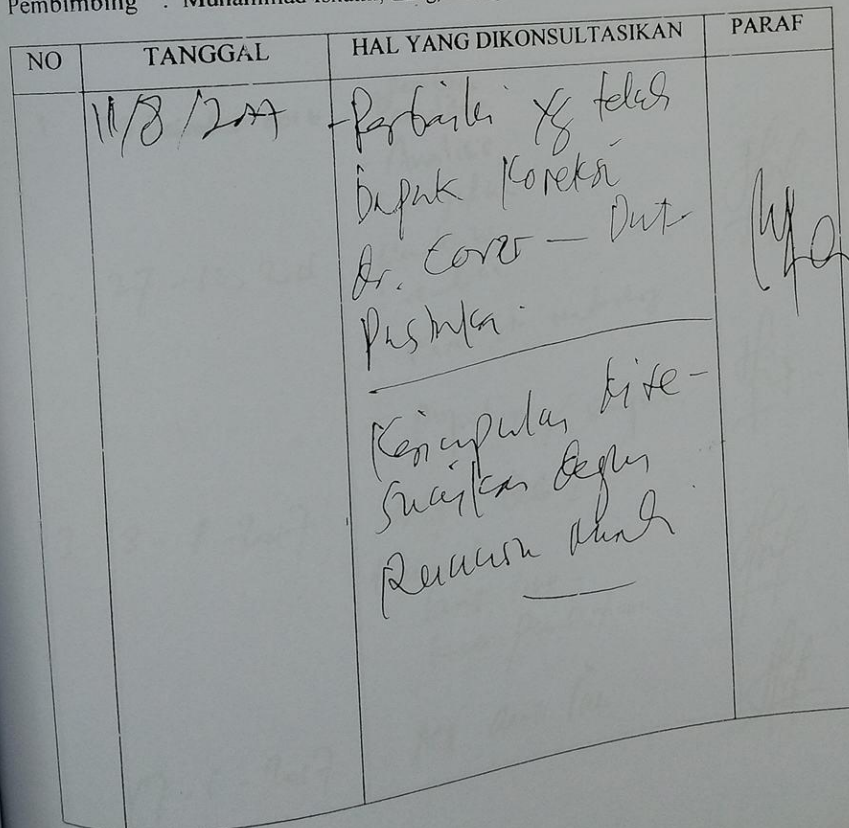 Pembimbing : Muhammad
NO TANGGAL HAL YANG DIKONSULTASIKAN PARAF
11/8/2017 - Perbaiki yg telah
bapak koreksi
dr. Cover — Daft
Pustaka.
Kesimpulan dise-
suaikan dengan
Rumusan